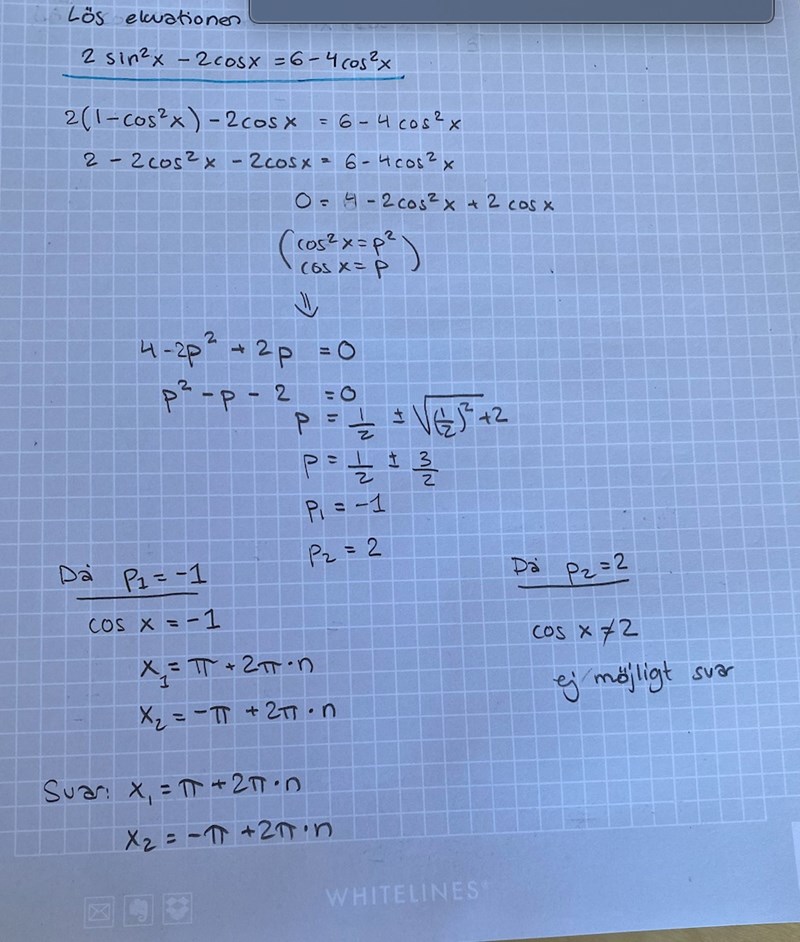 Lös ekvationen
2 sin²x - 2cosx = 6 - 4cos²x
2(1-cos²x) - 2cosx = 6 - 4cos²x
2 - 2cos²x - 2cosx = 6 - 4cos²x
0 = 4 - 2cos²x + 2 cosx
(cos²x = p²
cos x = p)
⇓
4 - 2p² + 2p = 0
p² - p - 2 = 0
p = 1/2 ± √((1/2)² + 2)
p = 1/2 ± 3/2
p₁ = -1
p₂ = 2
Då p₁ = -1
cos x = -1
x₁ = π + 2π · n
x₂ = -π + 2π · n
Då p₂ = 2
cos x ≠ 2
ej möjligt svar
Svar: x₁ = π + 2π · n
x₂ = -π + 2π · n
WHITELINES®